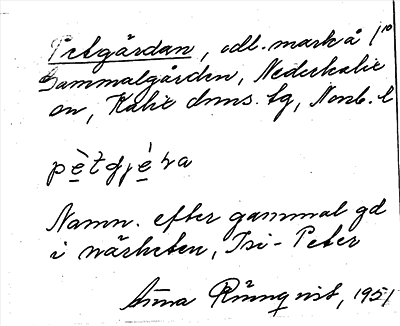 Petgärdan, odl. mark å f10
Gammalgården, Nederkalix
sn, Kalix dmns. tg, Norrb. l
pètgjèra
Namn. efter gammal gd
i närheten, Isi-Peter
Anna Rönnqvist, 1951